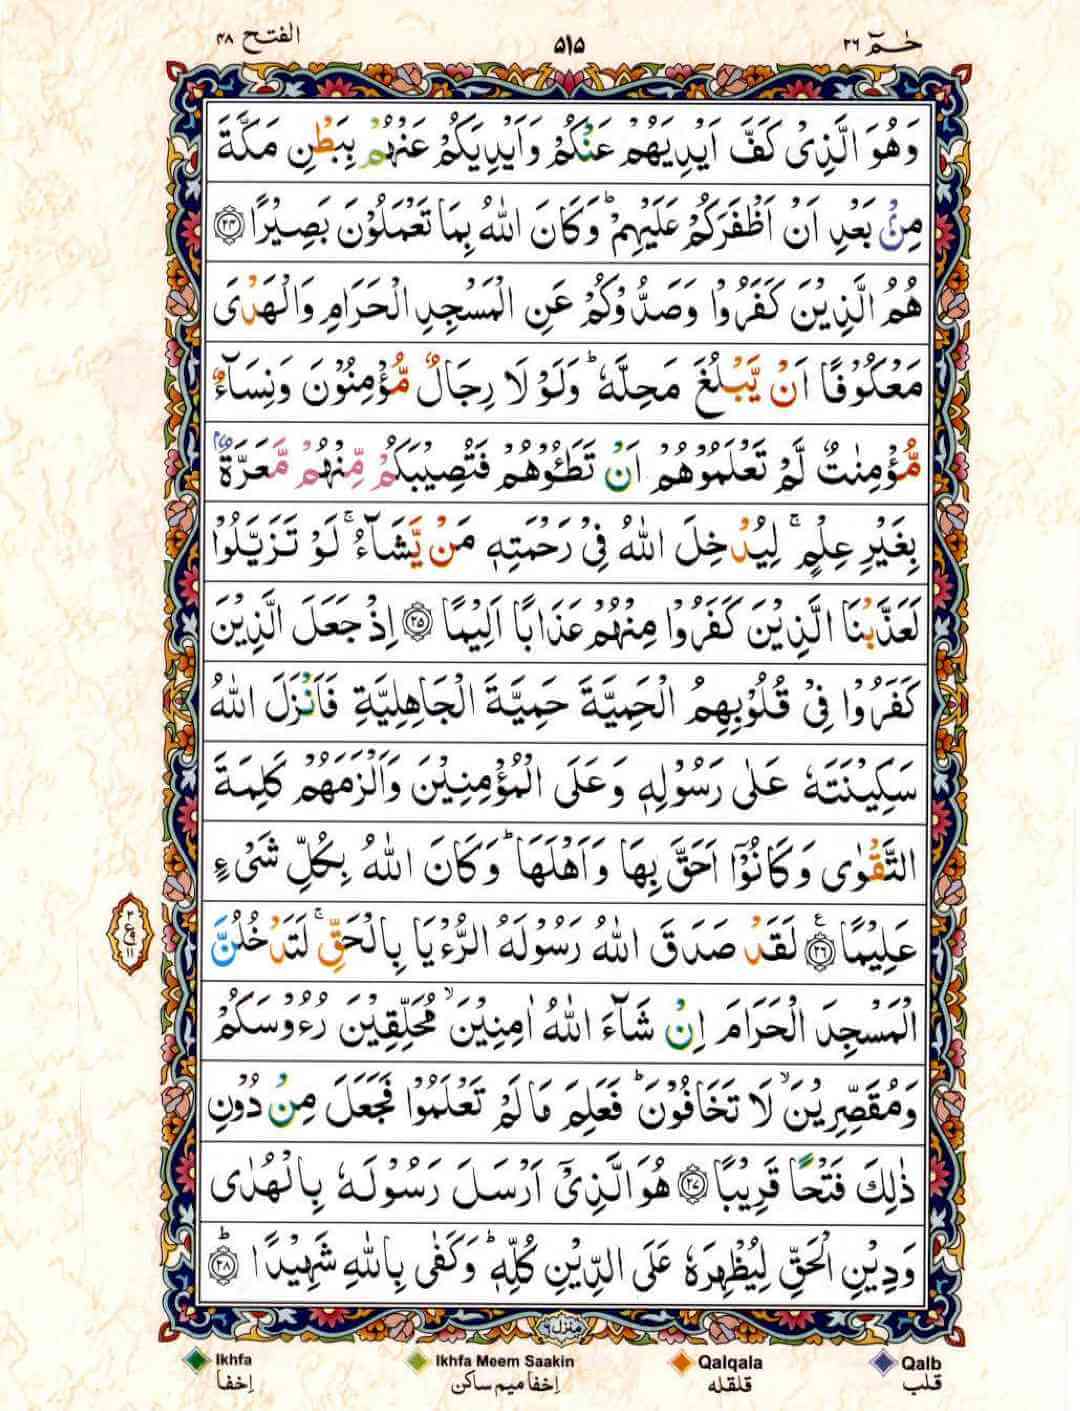 حٰمٓ ۲۶ ۵۱۵ الفتح ۴۸
وَهُوَ الَّذِىْ كَفَّ اَيْدِيَهُمْ عَنْكُمْ وَاَيْدِيَكُمْ عَنْهُمْ بِبَطْنِ مَكَّةَ
مِنْۢ بَعْدِ اَنْ اَظْفَرَكُمْ عَلَيْهِمْ ؕ وَكَانَ اللّٰهُ بِمَا تَعْمَلُوْنَ بَصِيْرًا ﴿۲۴﴾
هُمُ الَّذِيْنَ كَفَرُوْا وَصَدُّوْكُمْ عَنِ الْمَسْجِدِ الْحَرَامِ وَالْهَدْىَ
مَعْكُوْفًا اَنْ يَّبْلُغَ مَحِلَّهٗ ؕ وَلَوْ لَا رِجَالٌ مُّؤْمِنُوْنَ وَنِسَآءٌ
مُّؤْمِنٰتٌ لَّمْ تَعْلَمُوْهُمْ اَنْ تَطَـُٔوْهُمْ فَتُصِيْبَكُمْ مِّنْهُمْ مَّعَرَّةٌۢ
بِغَيْرِ عِلْمٍ ۚ لِيُدْخِلَ اللّٰهُ فِىْ رَحْمَتِهٖ مَنْ يَّشَآءُ ۚ لَوْ تَزَيَّلُوْا
لَعَذَّبْنَا الَّذِيْنَ كَفَرُوْا مِنْهُمْ عَذَابًا اَلِيْمًا ﴿۲۵﴾ اِذْ جَعَلَ الَّذِيْنَ
كَفَرُوْا فِىْ قُلُوْبِهِمُ الْحَمِيَّةَ حَمِيَّةَ الْجَاهِلِيَّةِ فَاَنْزَلَ اللّٰهُ
سَكِيْنَتَهٗ عَلٰى رَسُوْلِهٖ وَعَلَى الْمُؤْمِنِيْنَ وَاَلْزَمَهُمْ كَلِمَةَ
التَّقْوٰى وَكَانُوْٓا اَحَقَّ بِهَا وَاَهْلَهَا ؕ وَكَانَ اللّٰهُ بِكُلِّ شَىْءٍ
عَلِيْمًا ﴿۲۶﴾ ع لَقَدْ صَدَقَ اللّٰهُ رَسُوْلَهُ الرُّءْيَا بِالْحَقِّ ۚ لَتَدْخُلُنَّ
الْمَسْجِدَ الْحَرَامَ اِنْ شَآءَ اللّٰهُ اٰمِنِيْنَ ۙ مُحَلِّقِيْنَ رُءُوْسَكُمْ
وَمُقَصِّرِيْنَ ۙ لَا تَخَافُوْنَ ؕ فَعَلِمَ مَا لَمْ تَعْلَمُوْا فَجَعَلَ مِنْ دُوْنِ
ذٰلِكَ فَتْحًا قَرِيْبًا ﴿۲۷﴾ هُوَ الَّذِىْٓ اَرْسَلَ رَسُوْلَهٗ بِالْهُدٰى
وَدِيْنِ الْحَقِّ لِيُظْهِرَهٗ عَلَى الدِّيْنِ كُلِّهٖ ؕ وَكَفٰى بِاللّٰهِ شَهِيْدًا ؕ ﴿۲۸﴾
۳
ع
۱۱
منزل ۶
Ikhfa Ikhfa Meem Saakin Qalqala Qalb
اِخفا اِخفا میم ساکن قلقله قلب